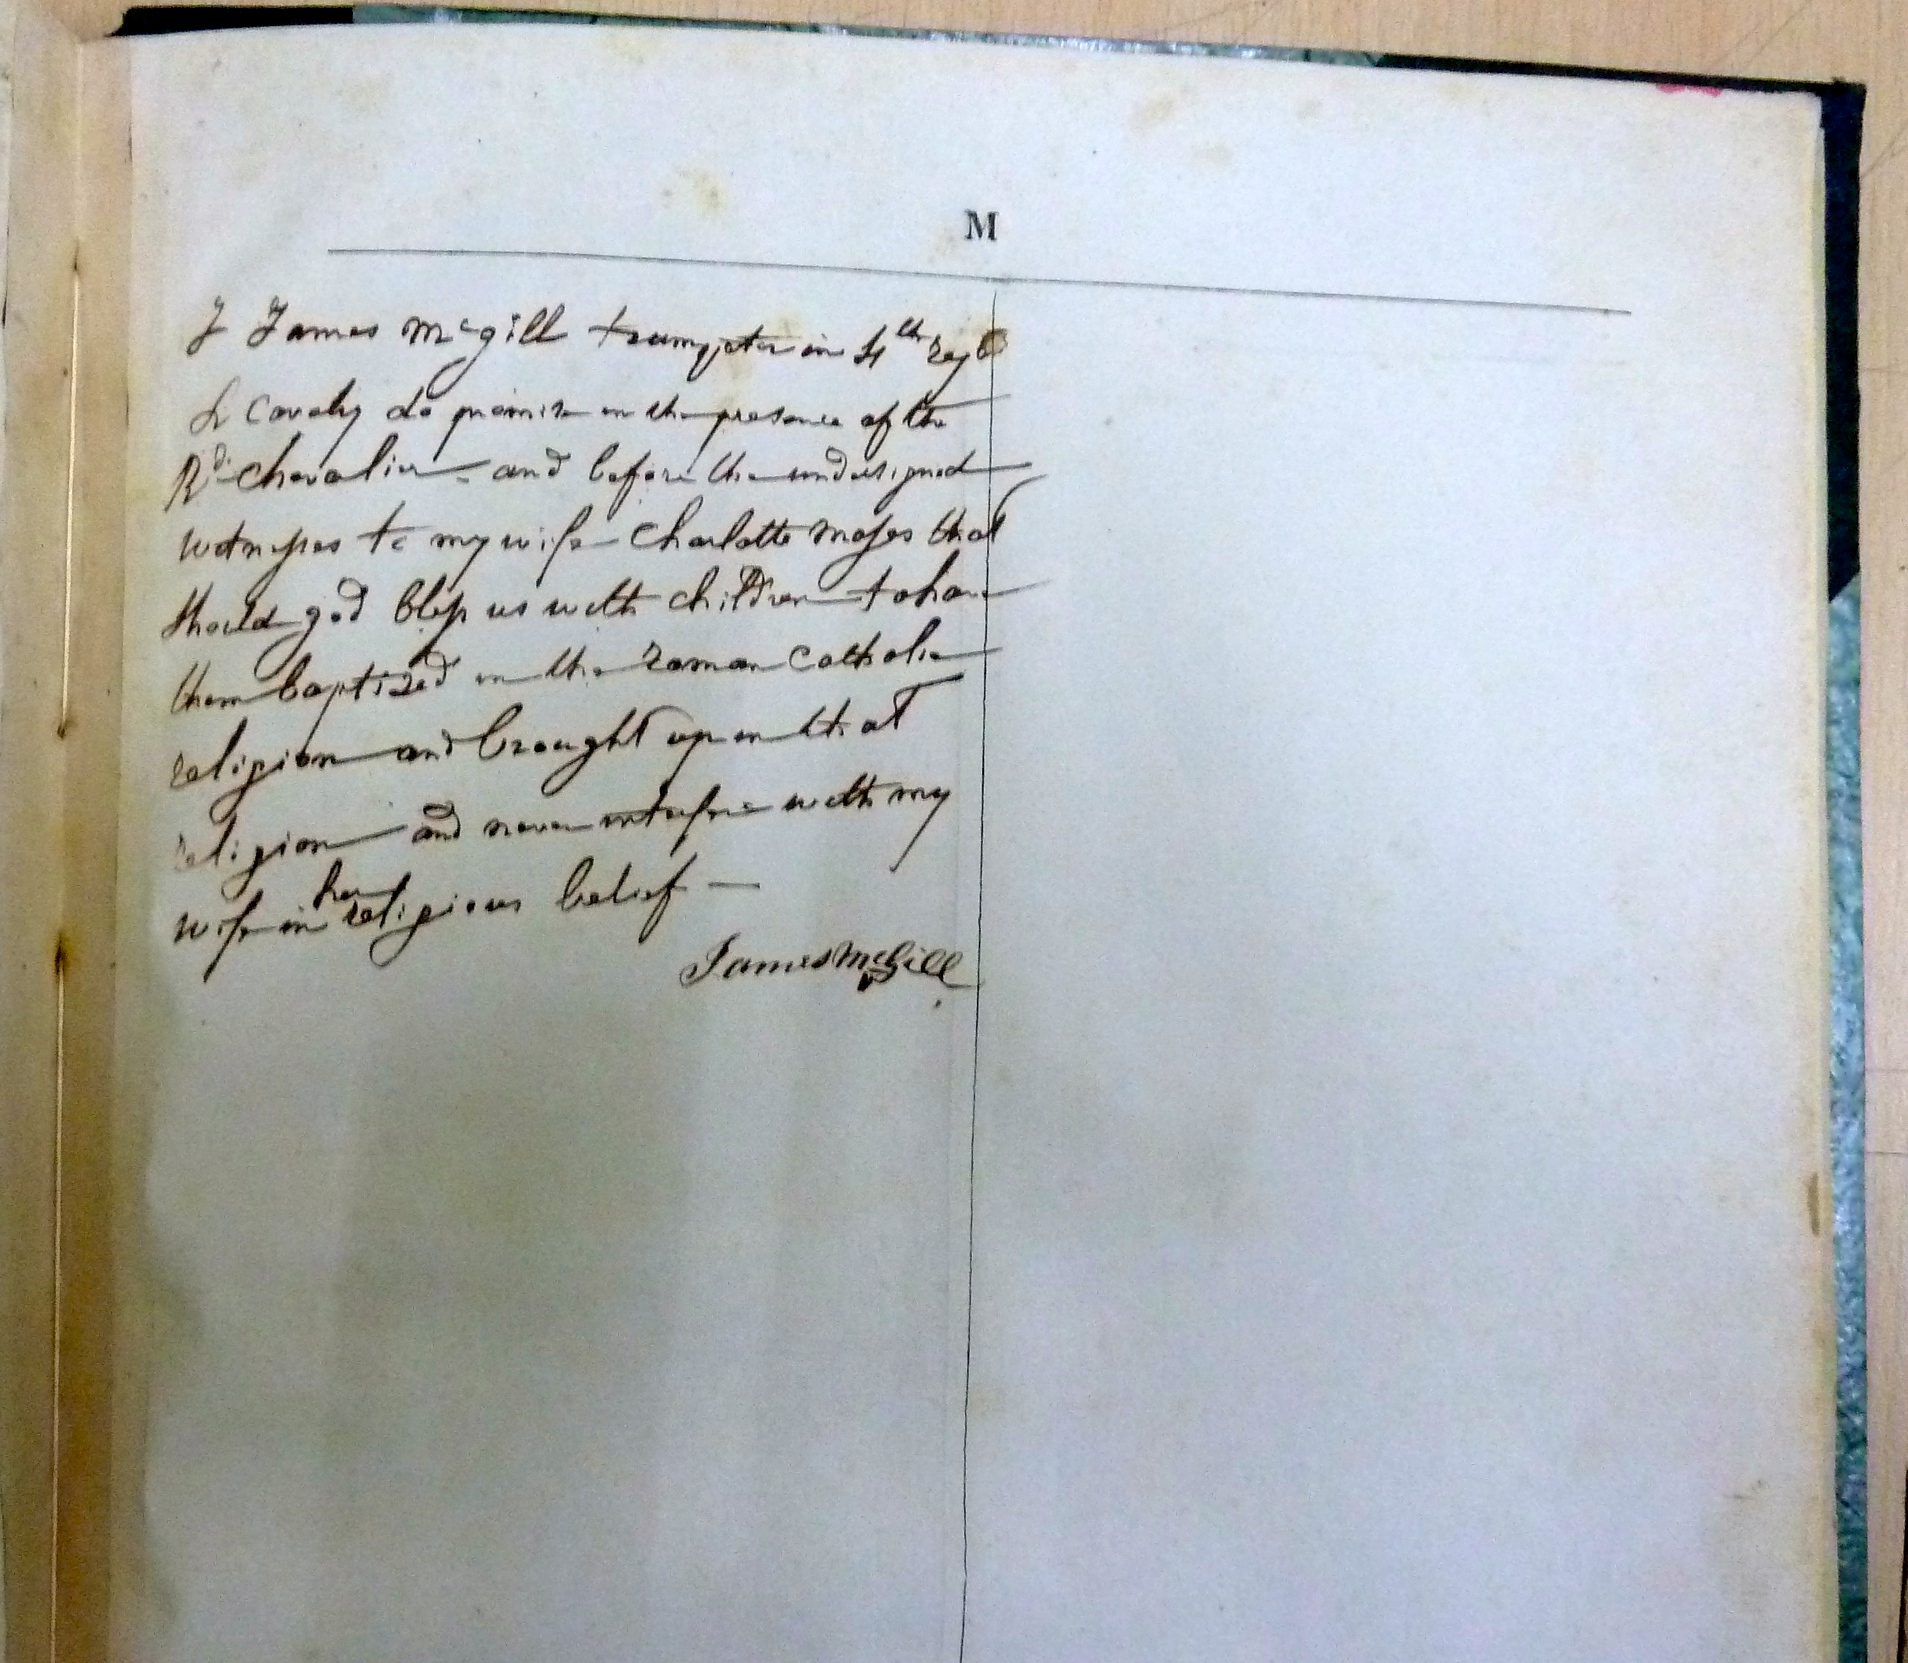 M
I James McGill trumpeter in 4th regt
L Cavalry do promise in the presence of the
Rd Chevalier and before the undersigned
witnesses to my wife Charlotte Moses that
should god bless us with children to have
them baptized in the roman catholic
religion and brought up in that
religion and never interfere with my
wife in her religious belief —
James McGill